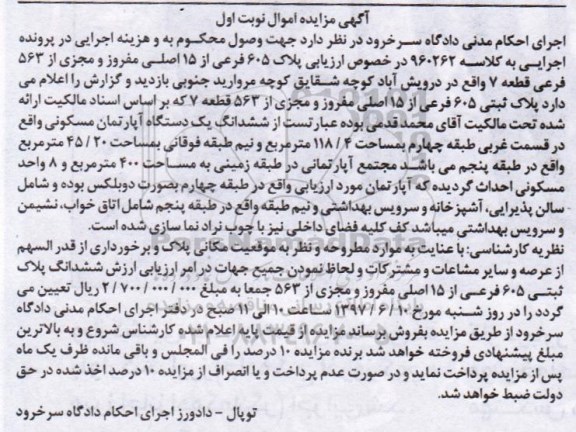 آگهی مزایده اموال نوبت اول
اجرای احکام مدنی دادگاه سرخرود در نظر دارد جهت وصول محکوم به و هزینه اجرایی در پرونده
اجرایی به کلاسه ۹۶۰۲۶۲ در خصوص ارزیابی پلاک ۶۰۵ فرعی از ۱۵ اصلی مفروز و مجزی از ۵۶۳
فرعی قطعه ۷ واقع در درویش آباد کوچه شقایق کوچه مروارید جنوبی بازدید و گزارش را اعلام می
دارد پلاک ثبتی ۶۰۵ فرعی از ۱۵ اصلی مفروز و مجزی از ۵۶۳ قطعه ۷ که بر اساس اسناد مالکیت ارائه
شده تحت مالکیت آقای محمد قدمی بوده عبارتست از ششدانگ یک دستگاه آپارتمان مسکونی واقع
در قسمت غربی طبقه چهارم بمساحت ۱۱۸/۴ مترمربع و نیم طبقه فوقانی بمساحت ۴۵/۲۰ مترمربع
واقع در طبقه پنجم می باشد مجتمع آپارتمانی در طبقه زمینی به مساحت ۴۰۰ مترمربع و ۸ واحد
مسکونی احداث گردیده که آپارتمان مورد ارزیابی واقع در طبقه چهارم بصورت دوبلکس بوده و شامل
سالن پذیرایی، آشپزخانه و سرویس بهداشتی و نیم طبقه واقع در طبقه پنجم شامل اتاق خواب، نشیمن
و سرویس بهداشتی میباشد کف کلیه فضای داخلی نیز با چوب نراد نما سازی شده است.
نظریه کارشناسی: با عنایت به موارد مطروحه و نظر به موقعیت مکانی پلاک و برخورداری از قدر السهم
از عرصه و سایر مشاعات و مشترکات و لحاظ نمودن جمیع جهات در امر ارزیابی ارزش ششدانگ پلاک
ثبتی ۶۰۵ فرعی از ۱۵ اصلی مفروز و مجزی از ۵۶۳ جمعا به مبلغ ۲/۷۰۰/۰۰۰/۰۰۰ ریال تعیین می
گردد را در روز شنبه مورخ ۱۳۹۷/۶/۱۰ ساعت ۱۰ الی ۱۱ صبح در دفتر اجرای احکام مدنی دادگاه
سرخرود از طریق مزایده بفروش برساند مزایده از قیمت پایه اعلام شده کارشناس شروع و به بالاترین
مبلغ پیشنهادی فروخته خواهد شد برنده مزایده ۱۰ درصد را فی المجلس و باقی مانده ظرف یک ماه
پس از مزایده پرداخت نماید و در صورت عدم پرداخت و یا انصراف از مزایده ۱۰ درصد اخذ شده در حق
دولت ضبط خواهد شد.
توپال - دادورز اجرای احکام دادگاه سرخرود